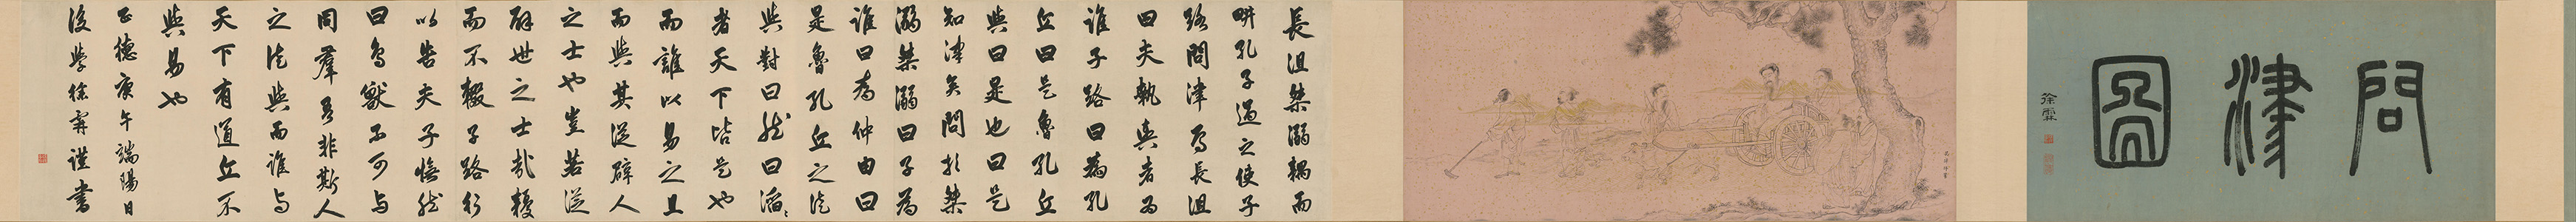 問津圖
徐霖
長沮桀溺耦而
畊孔子過之使子
路問津焉長沮
曰夫執輿者為
誰子路曰為孔
丘曰是魯孔丘
與曰是也曰是
知津矣問於桀
溺桀溺曰子為
誰曰為仲由曰
是魯孔丘之徒
與對曰然曰滔〻
者天下皆是也
而誰以易之且
而與其從辟人
之士也豈若從
辟世之士哉耰
而不輟子路行
以告夫子憮然
曰鳥獸不可与
同羣吾非斯人
之徒與而誰与
天下有道丘不
與易也
正德庚午端陽日
後學徐霖謹書